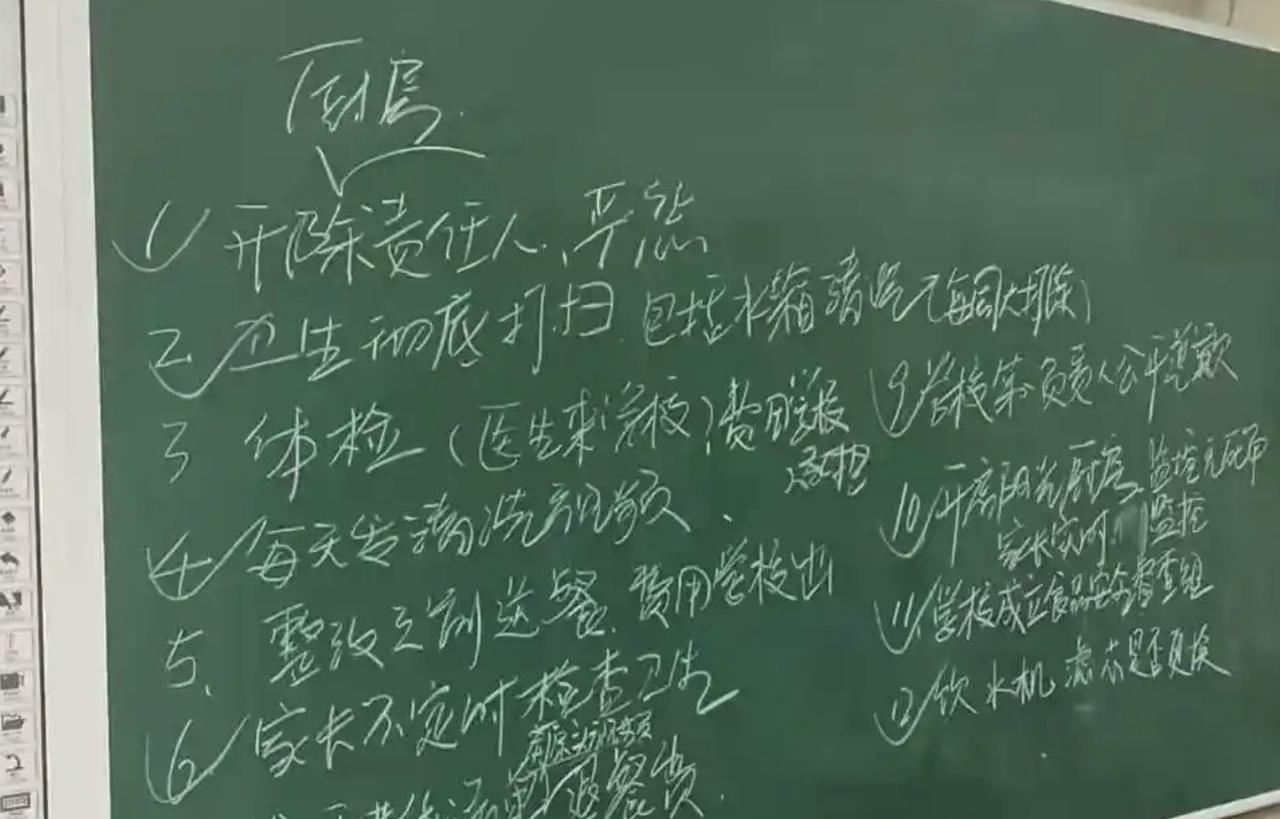 厨房
1 开除责任人、严惩
2 卫生彻底打扫 包括水箱清洗(每周大扫除)
3 体检(医生来学校)费用学校
承担
4 每天发清洗视频
5、整改之前送餐 费用学校出
6 家长不定时检查卫生
视频
退餐费
9 学校第一负责人公开道歉
10 开启阳光厨房 监控无死角
家长实时 监控
11 学校成立食品安全督查组
12 饮水机 滤芯是否更换